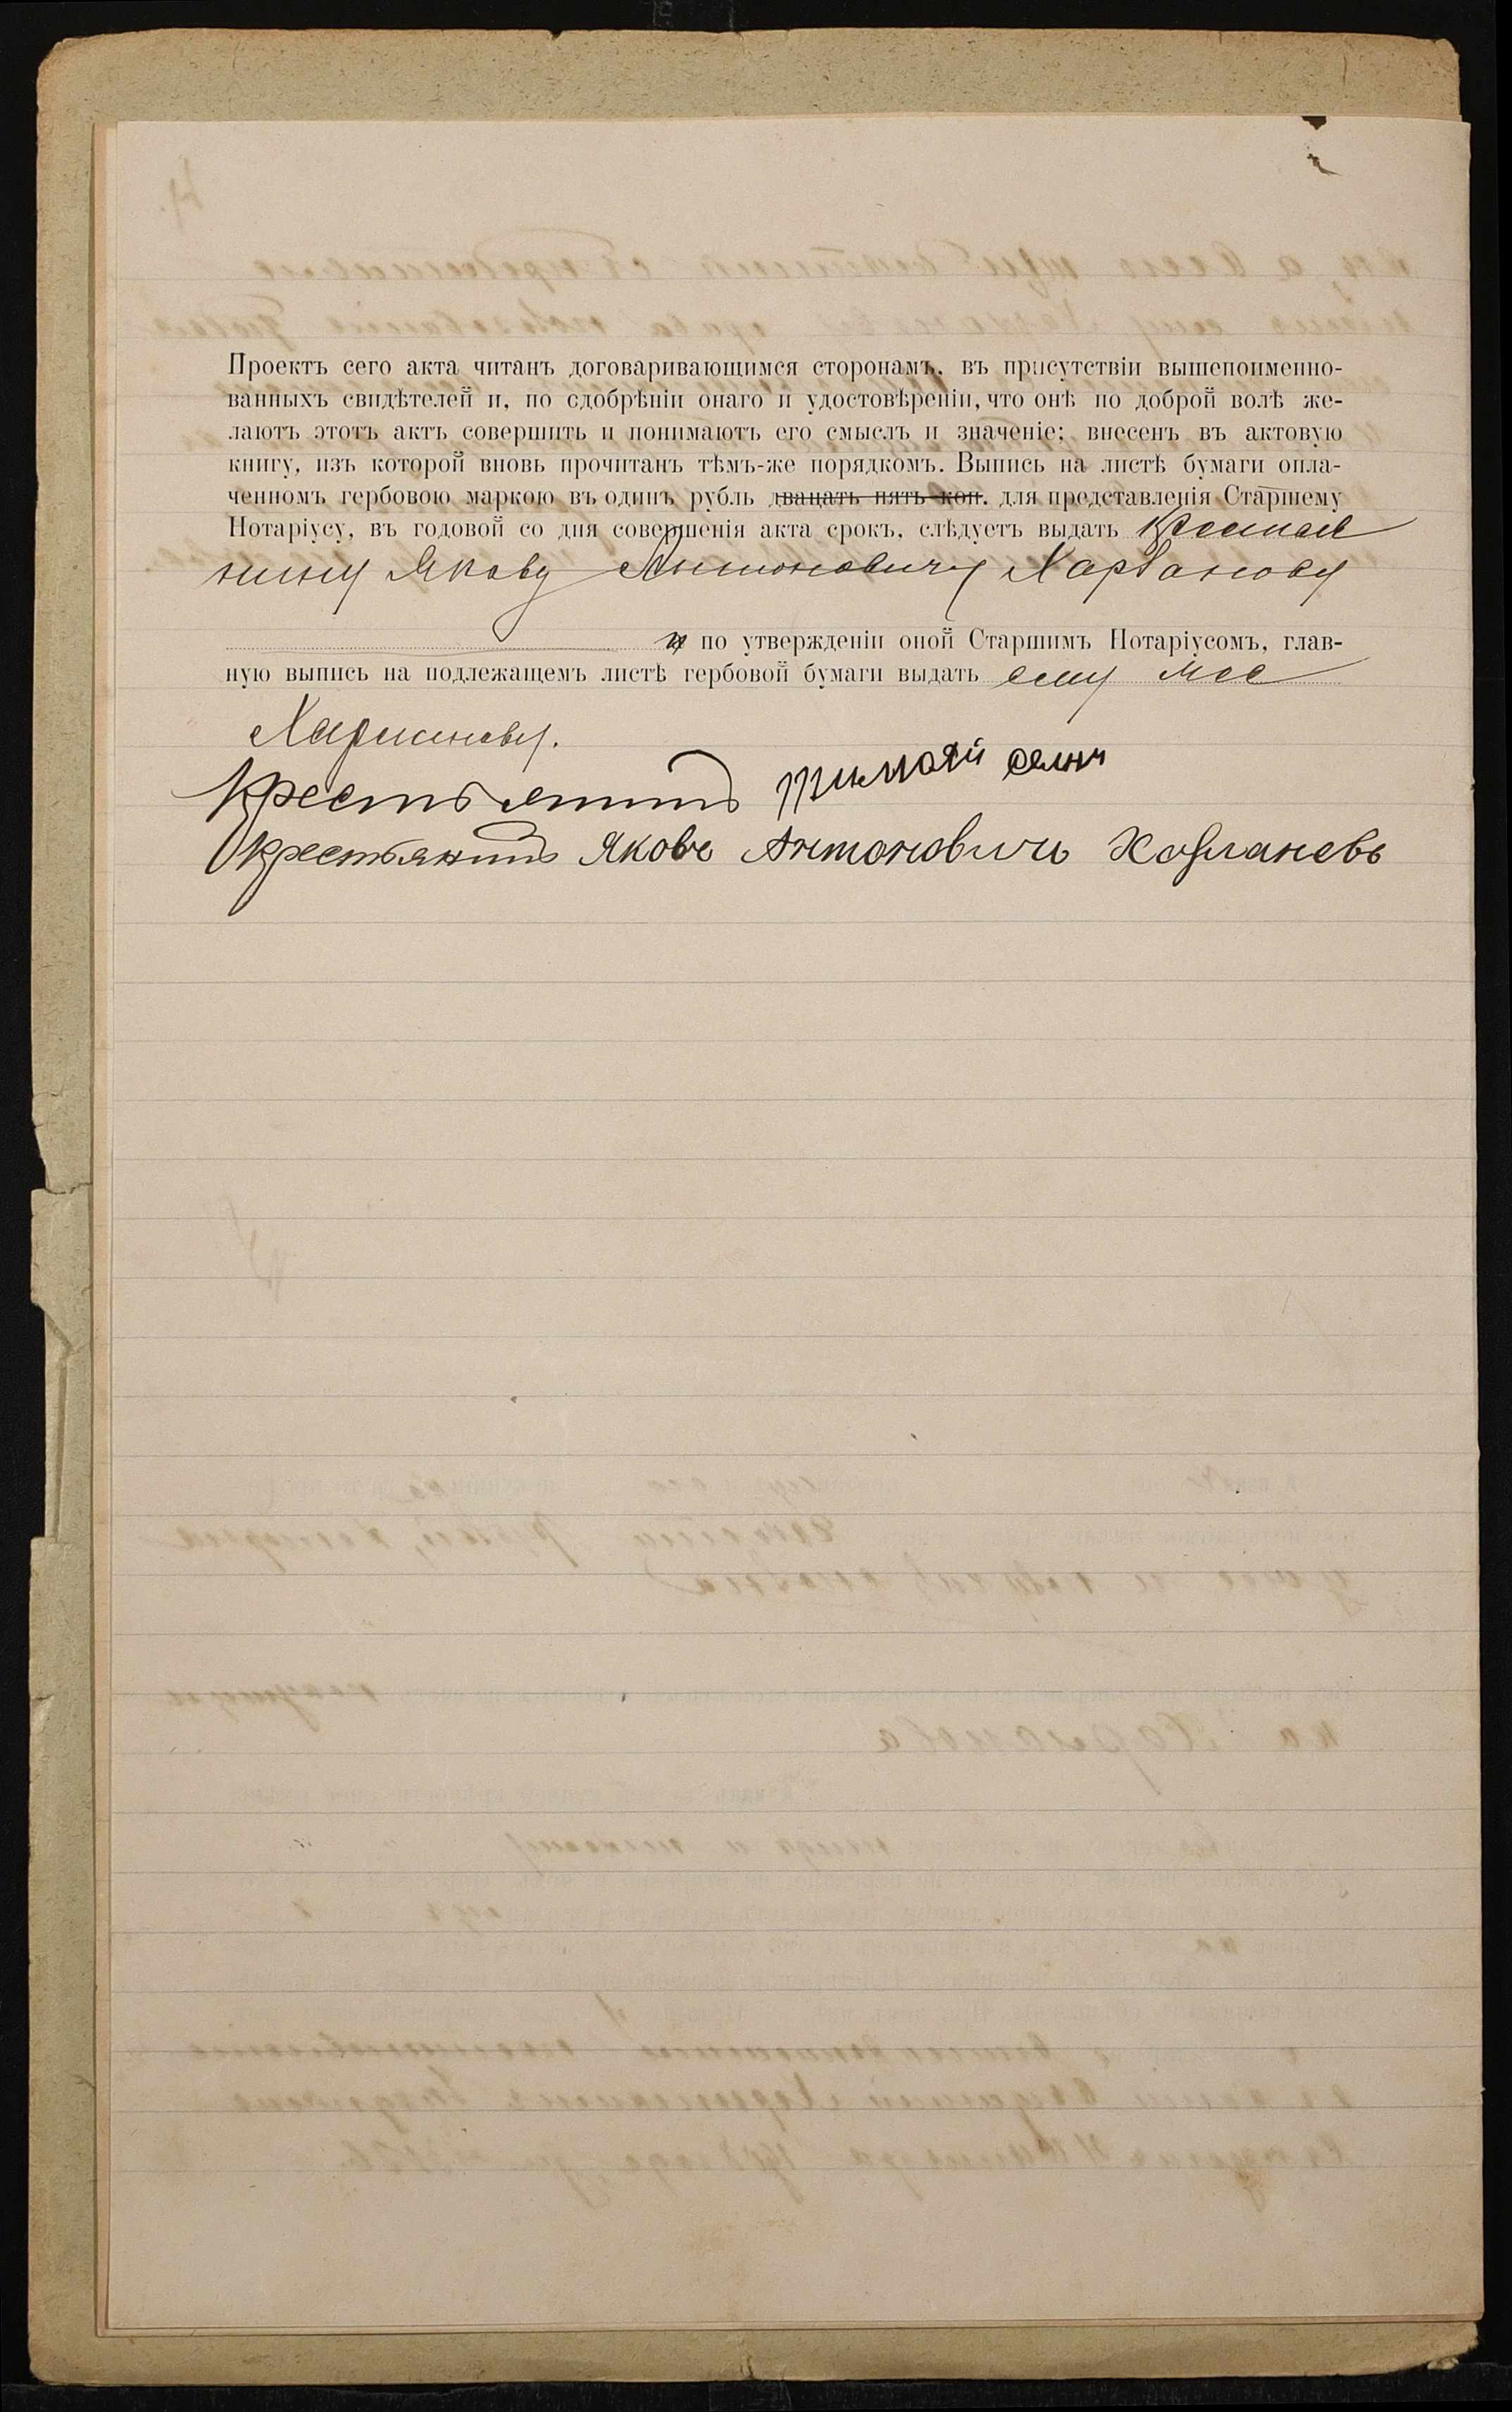 Проектъ сего акта читанъ договаривающимся сторонамъ, въ присутствіи вышепоименно-
ванныхъ свидѣтелей и, по одобрѣніи онаго и удостовѣреніи, что онѣ по доброй волѣ же-
лаютъ этотъ актъ совершить и понимаютъ его смыслъ и значеніе; внесенъ въ актовую
книгу, изъ которой вновь прочитанъ тѣмъ-же порядкомъ. Выпись на листѣ бумаги опла-
ченномъ гербовою маркою въ одинъ рубль двацать пять коп. для представленія Старшему
Нотаріусу, въ годовой со дня совершенія акта срокъ, слѣдуетъ выдать крестья
нину Якову Антоновичу Харланову
и по утвержденіи оной Старшимъ Нотаріусомъ, глав-
ную выпись на подлежащемъ листѣ гербовой бумаги выдать ему же
Харланову.
Крестьянинъ
крестьянинъ Яковъ Антоновичъ Харлановъ